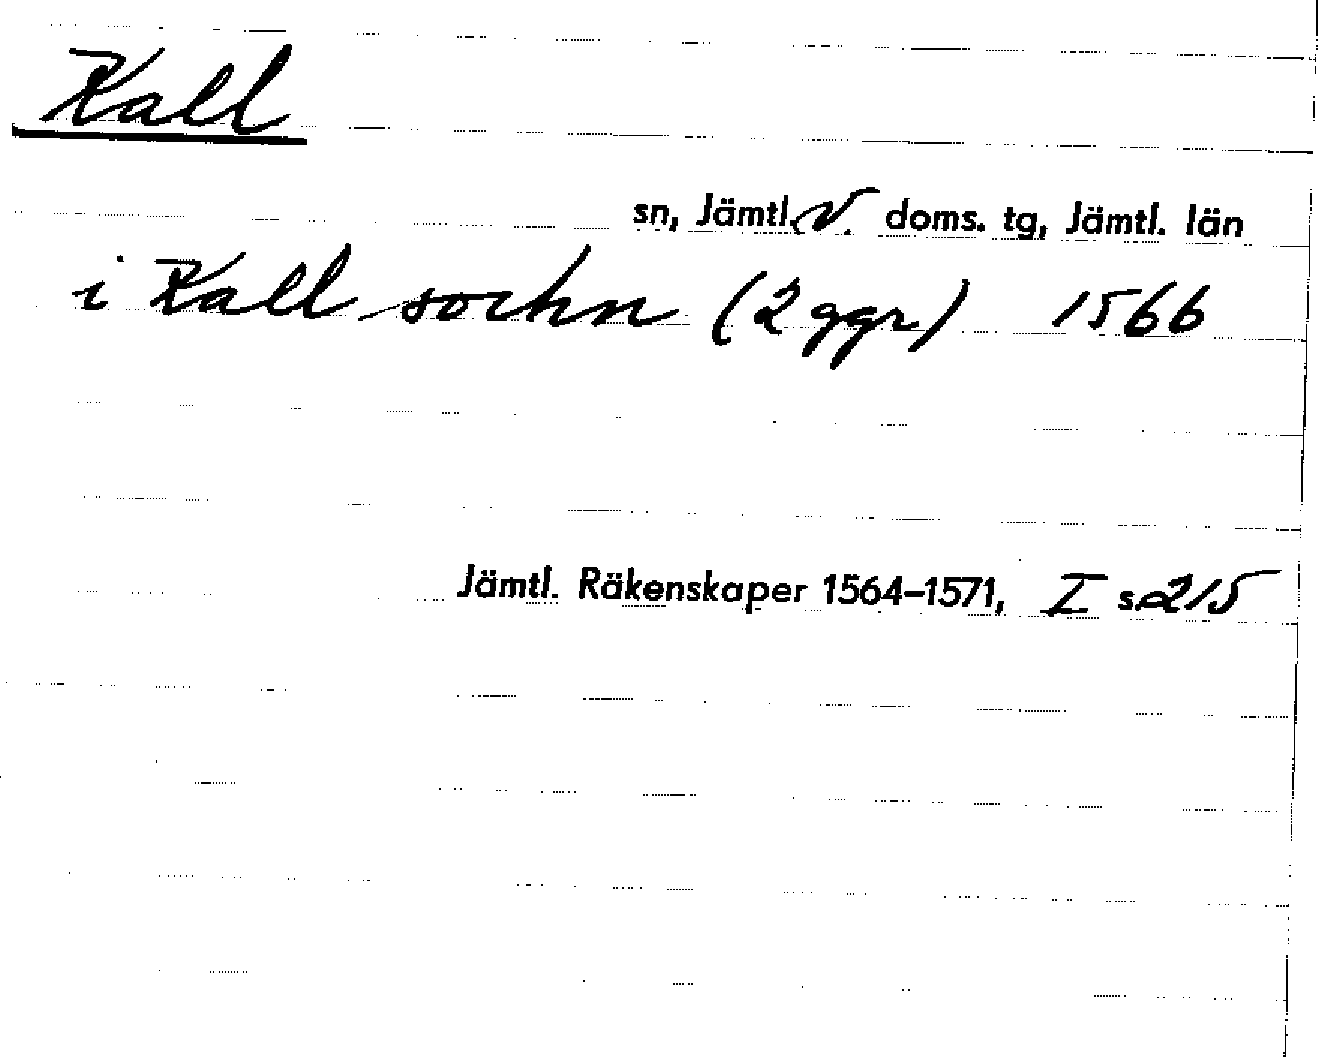 Kall
sn, Jämtl. V. doms. tg, Jämtl. län
i Kall sochn (2 ggr) 1566
Jämtl. Räkenskaper 1564-1571, I s. 215